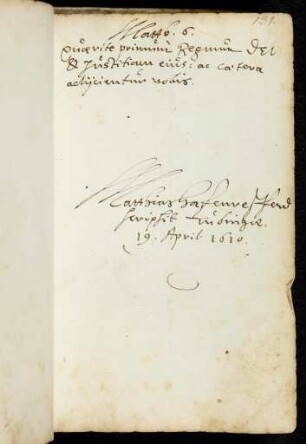 131.
Matth. 6.
Quærite primùm Regnum Dei
& Justitiam eius: ac cætera
adijcientur vobis.
Matthias Hafenreffer D
scripsit Tubingæ.
19. April 1610.